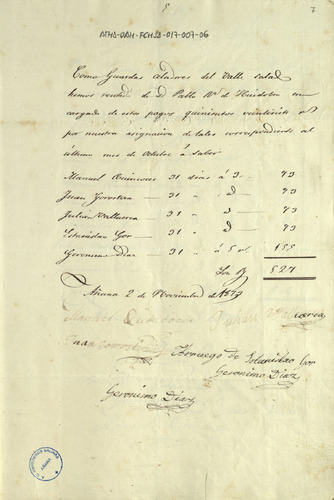 7
ATHA-DAH-FCHSA-017-007-06
Como Guardas celadores del Valle salado
hemos recivido de D. Pablo Ma. de Huidobro en
cargado de estos pagos quinientos veintisiete rs
por nuestra asignacion de tales correspondiente al
último mes de Octubre á saber
Manuel Quincoces 31 dias á 3 — 93
Juan Gorostiza — 31 " á 3 — 93
Julian Valluerca — 31 " 3 — 93
Estanislao Gor — 31 " 3 — 93
Geronimo Diaz — 31 " á 5 rl — 155
Son Rs 527
Añana 2 de Noviembre de 1879
Manuel Quincoces Julian Valluerca
Juan Gorostiza
Arruego de Estanislao Gor
Geronimo Diaz
Geronimo Diaz